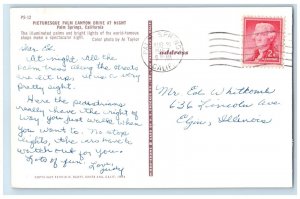 PS-12
PICTURESQUE PALM CANYON DRIVE AT NIGHT
Palm Springs, California
The illuminated palms and bright lights of the world-famous
shops make a spectacular sight.
Color photo by
address
CALIF.
2¢
Dear Ed.
At night, all the
palm trees along the streets
are lit up,
pretty sight.
Here the pedestrians
really have the right of
way you just walk when
you want to. No stop
lights, the cars have to
watch out for you.
Lots of fun.
Love,
Judy
Mr Ed Whitcomb
636 Lincoln Ave
Elgin, Illinois